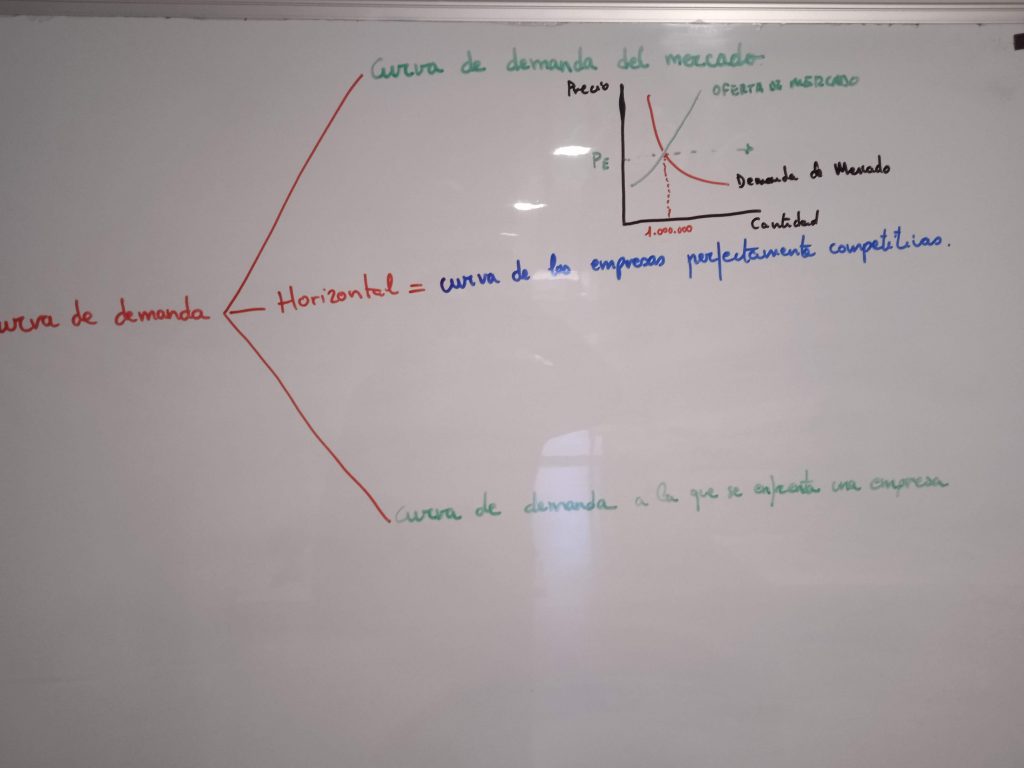 Curva de demanda del mercado
Precio
OFERTA DE MERCADO
PE
Demanda de Mercado
Cantidad
1.000.000
urva de demanda
Horizontal = curva de las empresas perfectamente competitivas.
curva de demanda a la que se enfrenta una empresa